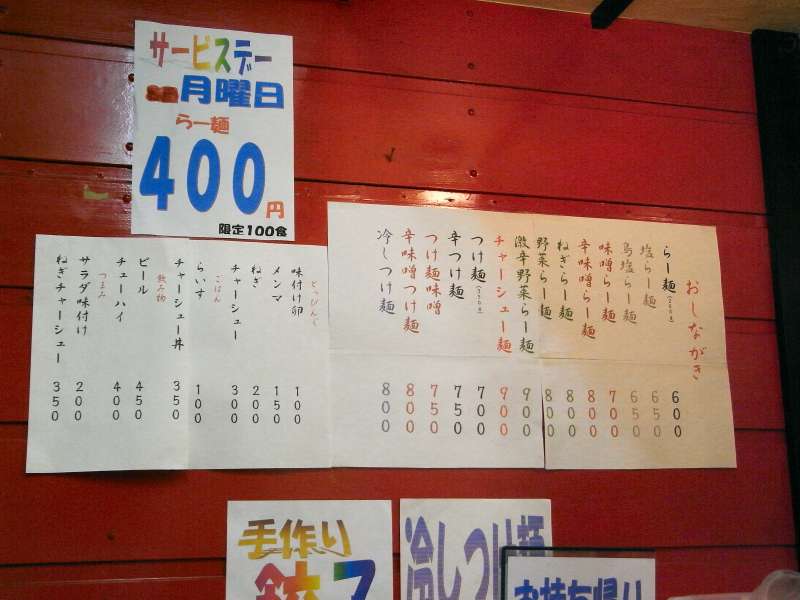 サービスデー
月曜日
らー麺
400円
限定100食
おしながき
らー麺 600
塩らー麺 650
鳥塩らー麺 650
味噌らー麺 700
辛味噌らー麺 800
ねぎらー麺 800
野菜らー麺 800
激辛野菜らー麺 900
チャーシュー麺 900
つけ麺 700
辛つけ麺 750
つけ麺味噌 750
辛味噌つけ麺 800
冷しつけ麺 800
とっぴんぐ
味付け卵 100
メンマ 150
ねぎ 200
チャーシュー 300
ごはん
らいす 100
チャーシュー丼 350
飲み物
ビール 450
チューハイ 400
つまみ
サラダ味付け 200
ねぎチャーシュー 350
手作り
冷しつけ麺
お持ち帰り